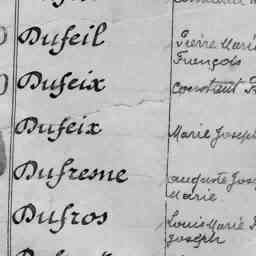 Dufeil Pierre Marie
François
Dufeix Constant
Dufeix Marie Joseph
Dufresne auguste
Marie
Dufros Louis Marie
Joseph